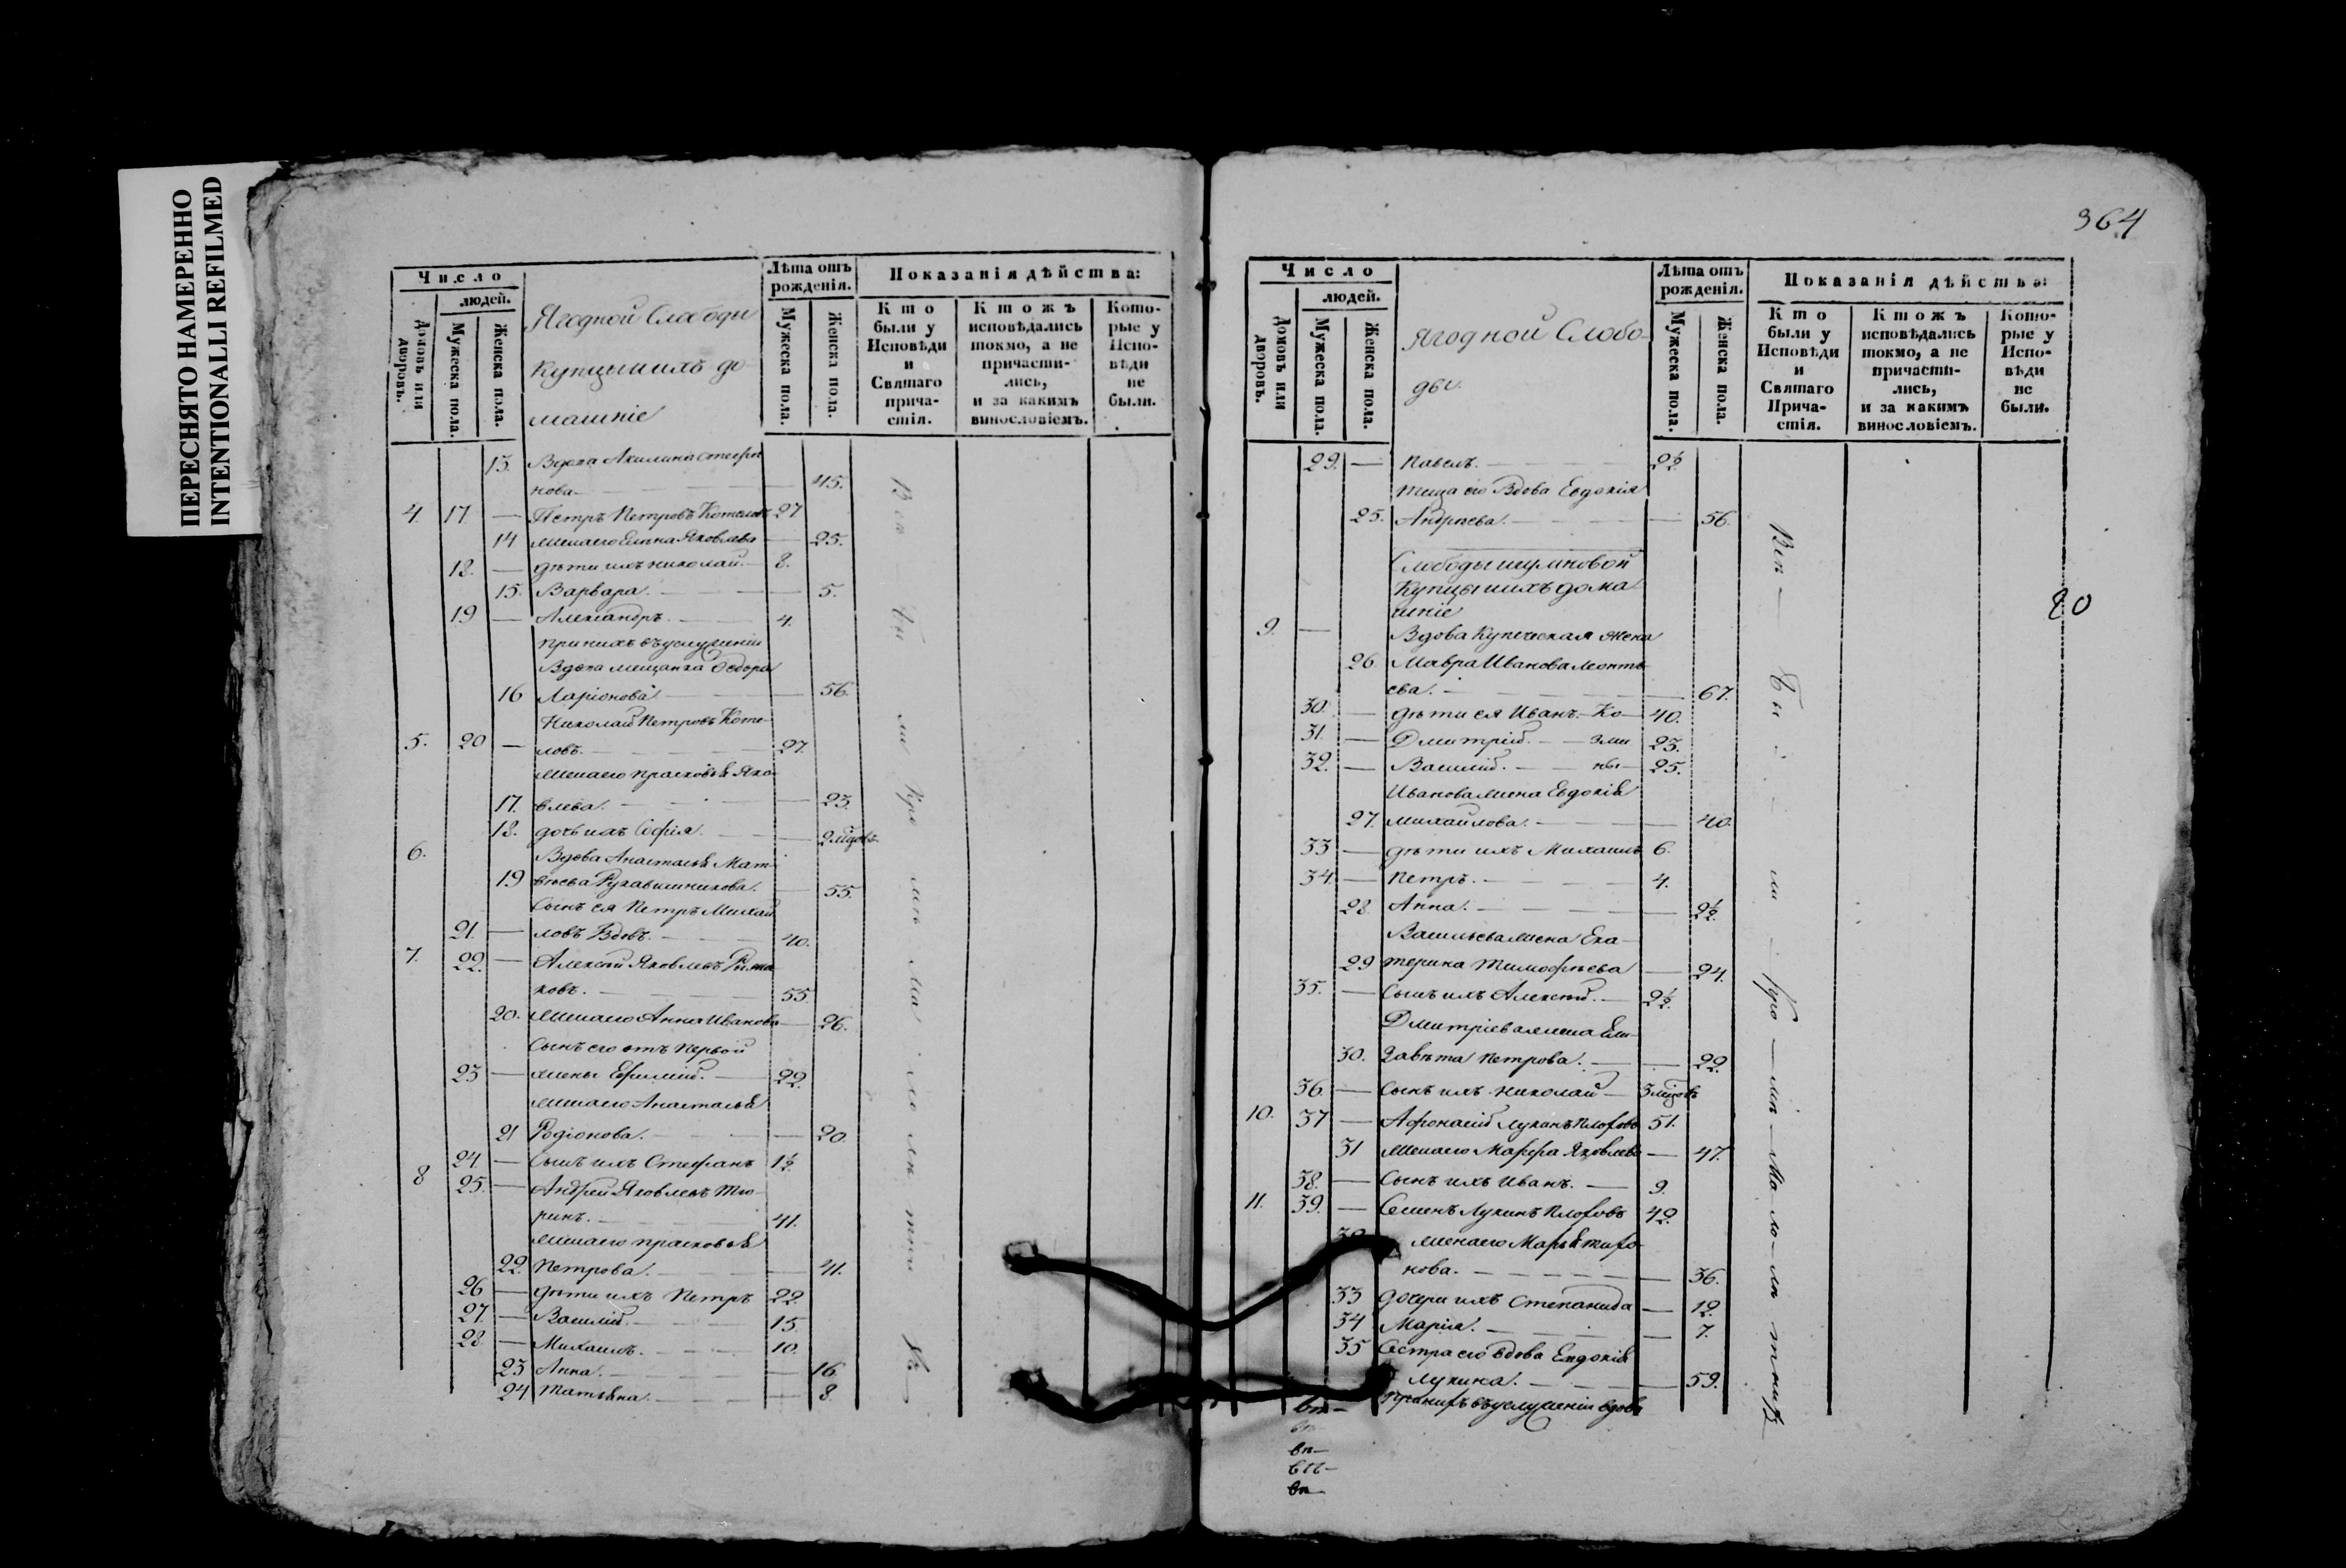 ПЕРЕСНЯТО НАМЕРЕННО
INTENTIONALLI REFILMED
Число
людей.
Домовъ или дворовъ.
Мужеска пола.
Женска пола.
Ягодной Слободы
Купцы и ихъ до-
машніе
Лѣта отъ рожденія.
Мужеска пола.
Женска пола.
Показанія дѣйства:
Кто были у Исповѣди и Святаго прича-стія.
Ктожъ исповѣдались токмо, а не причасти-лись, и за какимъ винословіемъ.
Кото-рые у Испо-вѣди не были.
13. Вдова Акилина Стефа
нова 45.
4. 17. — Петръ Петровъ Котеловъ 27
14 жена его Елена Яковлева — 25.
18. — дѣти ихъ Николай. 8.
15. Варвара. — 5.
19 — Александръ. 4.
при нихъ въ услуженіи
Вдова мещанка Ѳедора
16 Ларіонова — 56.
Николай Петровъ Коте-
5. 20 — ловъ. 27.
жена его Прасковья Яко-
17. влева. — 23.
18. дочь ихъ Софія. — 2 мѣсцовъ
6. Вдова Анастасья Мат-
19 вѣева Рукавишникова. — 55.
Сынъ ея Петръ Михай
21. — ловъ Вдовъ. 40.
7. 22. — Алексѣй Яковлевъ
ковъ. 55.
20. жена его Анна Иванова — 26.
Сынъ его отъ Первой
23 — жены Ефимій. 22.
жена его Анастасья
21 Родіонова. — 20.
24. — Сынъ ихъ Стефанъ 1½
8 25. — Андрей Яковлевъ Тю-
ринъ. 41.
жена его Прасковья
22. Петрова. — 41.
26 — дѣти ихъ Петръ 22.
27. — Василій. 15.
28 — Михаилъ. 10.
23 Анна. — 16.
24 Татьяна. — 8.
Всѣ Бы ли
364
Число
людей.
Домовъ или дворовъ.
Мужеска пола.
Женска пола.
Ягодной Слобо-
ды.
Лѣта отъ рожденія.
Мужеска пола.
Женска пола.
Показанія дѣйства:
Кто были у Исповѣди и Святаго Прича-стія.
Ктожъ исповѣдались токмо, а не причасти-лись, и за какимъ винословіемъ.
Кото-рые у Испо-вѣди не были.
29. — Павелъ. 2½
теща его Вдова Евдокія
25. Андреева. — 56.
Слободы Ишумновой
Купцы и ихъ дома
шніе
9. — Вдова Купеческая жена
26. Мавра Иванова Леонть-
ева. — 67.
30. — дѣти ея Иванъ. — Ко — 40.
31. — Дмитрій. — зми 23.
32. — Василій. — ны — 25.
Иванова жена Евдокія
27. Михайлова. — 40.
33 — дѣти ихъ Михаилъ 6.
34. — Петръ. 4.
28. Анна. — 2½
Васильева жена Ека-
29 терина Тимофѣева — 24.
35. — Сынъ ихъ Алексѣй. 2½
Дмитріева жена Ели-
30. завѣта Петрова. — 22.
36. — Сынъ ихъ Николай — 3 мѣсцовъ
10. 37 — Афонасій Лукинъ 51.
31 жена его Марфа Яковлева — 47.
38. — Сынъ ихъ Иванъ. — 9.
11. 39. — Семенъ Лукинъ 42.
жена его Марья
нова. — 36.
33 дочери ихъ Степанида — 12.
34 Марія. — 7.
35 Сестра его вдова Евдокія
Лукина. — 59.
При нихъ въ услуженіи вдова
Всѣ — Бы — ли
80
вп—
вп
вп—
вп—
вп—